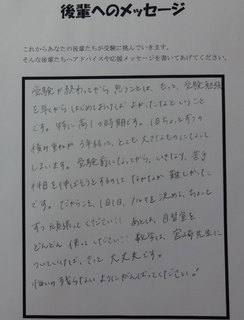 後輩へのメッセージ
これからあなたの後輩たちが受験に挑んでいきます。
そんな後輩たちへアドバイスや応援メッセージを書いてあげてください。
受験が終わってから思うことは、もっと、受験勉強
を早くからはじめておけばよかったなということ
です。特に高1の時期です。1日ちょっとずつの
積み重ねが3年経つと、とても大きなものになって
しまいます。受験前になってから、いきなり、苦手
科目を伸ばそうとするのはなかなか難しかった
です。だからこそ、1日1日、ノルマを決めて、ちょっと
ずつ頑張ってください!! あとは、自習室を
どんどん使ってください!! 数学は、宮崎先生に
ついていけば、きっと大丈夫です。
悔いの残らないようにがんばってください!